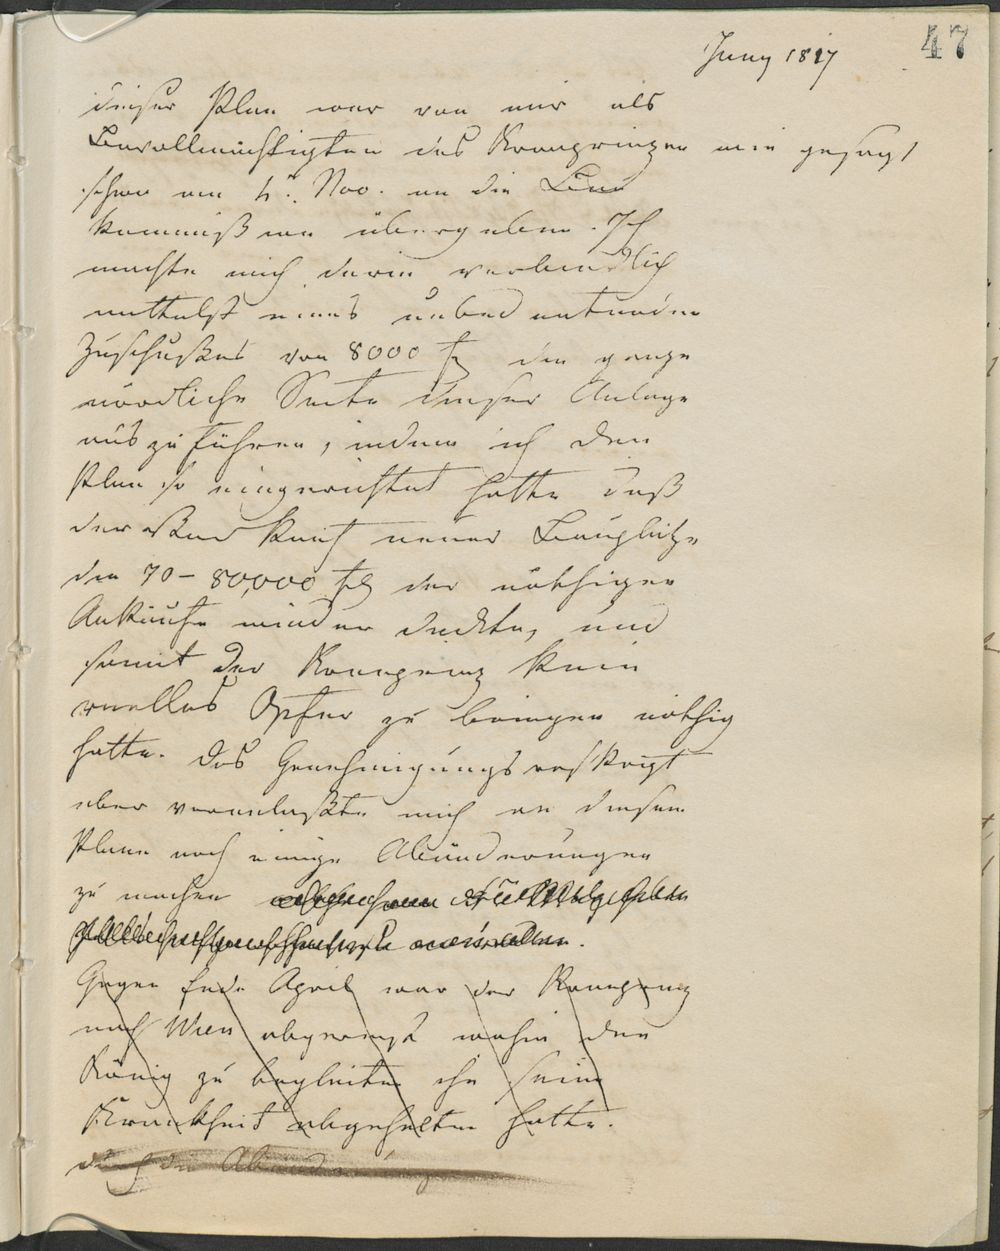 Juny 1817
47
dieser Plan war von mir als
Bevollmächtigten des Kronprinzen wie gesagt
schon am 4. Nov. an die Bau
kommißion übergeben. Ich
machte mich darin verbindlich
mittelst eines unbedeutenden
Zuschußes von 8000 fl die ganze
nördliche Seite dieser Anlage
auszuführen, indem ich den
Plan so eingerichtet hatte daß
der Verkauf neuer Bauplätze
die 70 – 80,000 fl der nöthigen
Ankäufe wieder deckte, und
somit der Kronprinz kein
reelles Opfer zu bringen nöthig
hatte. Das Genehmigungsreskript
aber veranlaßte mich an diesem
Plane noch einige Abänderungen
zu machen
Gegen Ende April war der Kronprinz
nach Wien abgereist wohin den
König zu begleiten ihn seine
Krankheit abgehalten hatte.
durch die